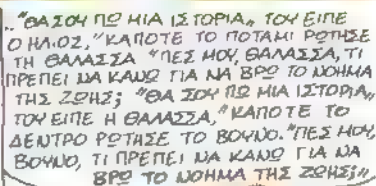 „"ΘΑ ΣΟΥ ΠΩ ΜΙΑ ΙΣΤΟΡΙΑ„ ΤΟΥ ΕΙΠΕ
Ο ΗΛΙΟΣ, "ΚΑΠΟΤΕ ΤΟ ΠΟΤΑΜΙ ΡΩΤΗΣΕ
ΤΗ ΘΑΛΑΣΣΑ "ΠΕΣ ΜΟΥ, ΘΑΛΑΣΣΑ, ΤΙ
ΠΡΕΠΕΙ ΝΑ ΚΑΝΩ ΓΙΑ ΝΑ ΒΡΩ ΤΟ ΝΟΗΜΑ
ΤΗΣ ΖΩΗΣ; "ΘΑ ΣΟΥ ΠΩ ΜΙΑ ΙΣΤΟΡΙΑ„
ΤΟΥ ΕΙΠΕ Η ΘΑΛΑΣΣΑ, "ΚΑΠΟΤΕ ΤΟ
ΔΕΝΤΡΟ ΡΩΤΗΣΕ ΤΟ ΒΟΥΝΟ. "ΠΕΣ ΜΟΥ,
ΒΟΥΝΟ, ΤΙ ΠΡΕΠΕΙ ΝΑ ΚΑΝΩ ΓΙΑ ΝΑ
ΒΡΩ ΤΟ ΝΟΗΜΑ ΤΗΣ ΖΩΗΣ;„